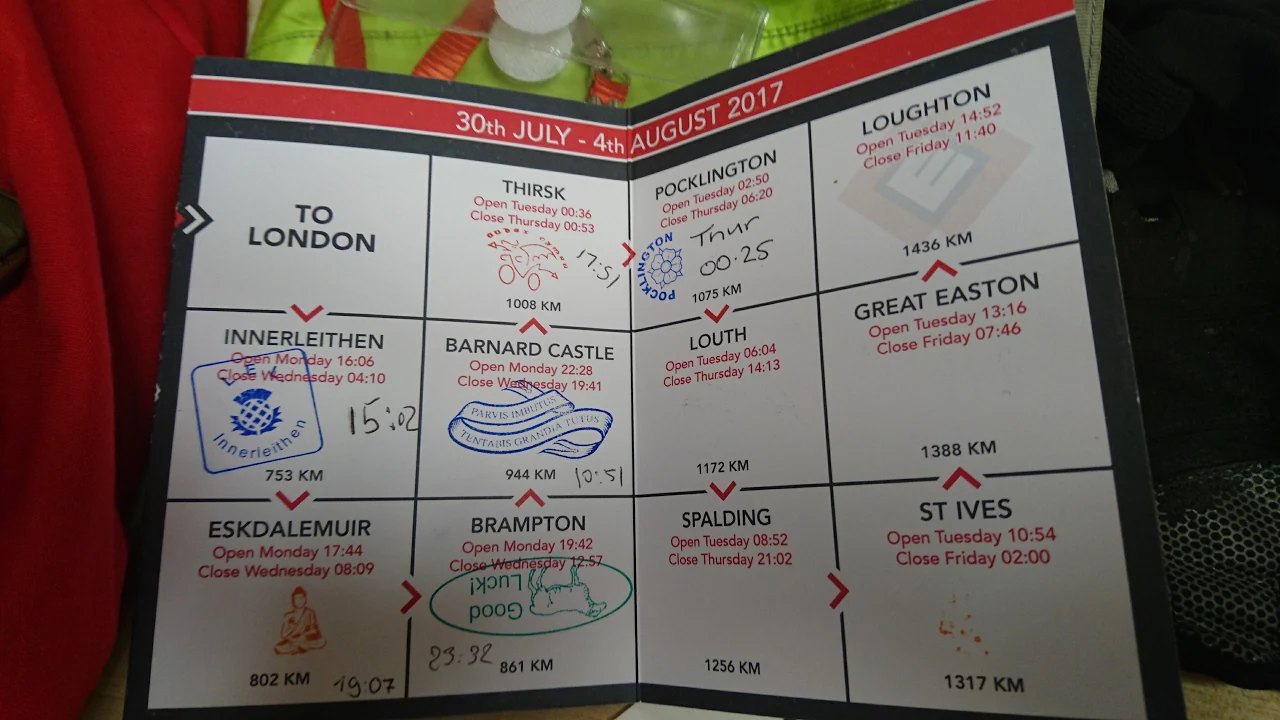 30th JULY - 4th AUGUST 2017
TO
LONDON
INNERLEITHEN
Open Monday 16:06
Close Wednesday 04:10
Innerleithen
15:02
753 KM
ESKDALEMUIR
Open Monday 17:44
Close Wednesday 08:09
802 KM
19:07
BRAMPTON
Open Monday 19:42
Close Wednesday 12:57
Good
Luck!
23:32
861 KM
BARNARD CASTLE
Open Monday 22:28
Close Wednesday 19:41
PARVIS IMBUTUS
TENTABIS GRANDIA TUTUS
944 KM
10:51
THIRSK
Open Tuesday 00:36
Close Thursday 00:53
17:51
1008 KM
POCKLINGTON
Open Tuesday 02:50
Close Thursday 06:20
POCKLINGTON
Thur
00.25
1075 KM
LOUTH
Open Tuesday 06:04
Close Thursday 14:13
1172 KM
SPALDING
Open Tuesday 08:52
Close Thursday 21:02
1256 KM
ST IVES
Open Tuesday 10:54
Close Friday 02:00
1317 KM
GREAT EASTON
Open Tuesday 13:16
Close Friday 07:46
1388 KM
LOUGHTON
Open Tuesday 14:52
Close Friday 11:40
1436 KM